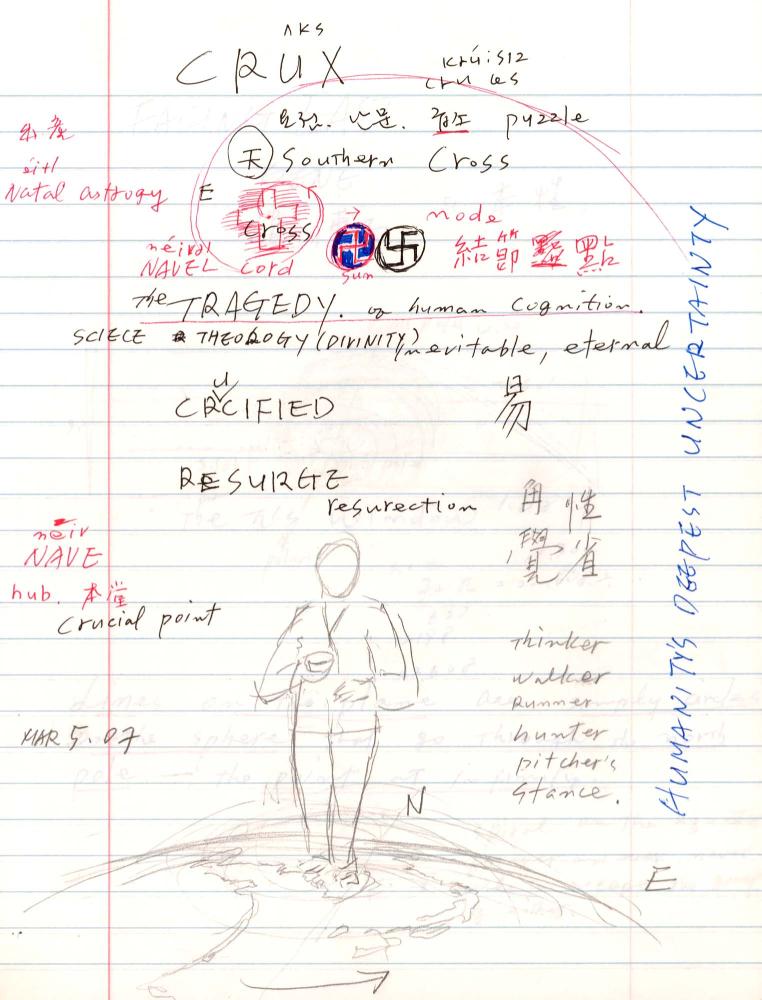 ʌks
CRUX
krúisiz
cruces
puzzle
天 Southern Cross
éitl
Natal astrogy
E
Cross
néivəl
NAVEL Cord
sun
node
結節 點
The TRAGEDY. of human cognition.
SCIECE & THEOLOGY (DIVINITY) inevitable, eternal
CRUCIFIED
易
RESURGE
resurection
角 性
覺 省
néiv
NAVE
hub. 本堂
Crucial point
Thinker
walker
Runner
hunter
pitcher's
Stance.
MAR 5.07
N
N
E
HUMANITY'S DEEPEST UNCERTAINTY